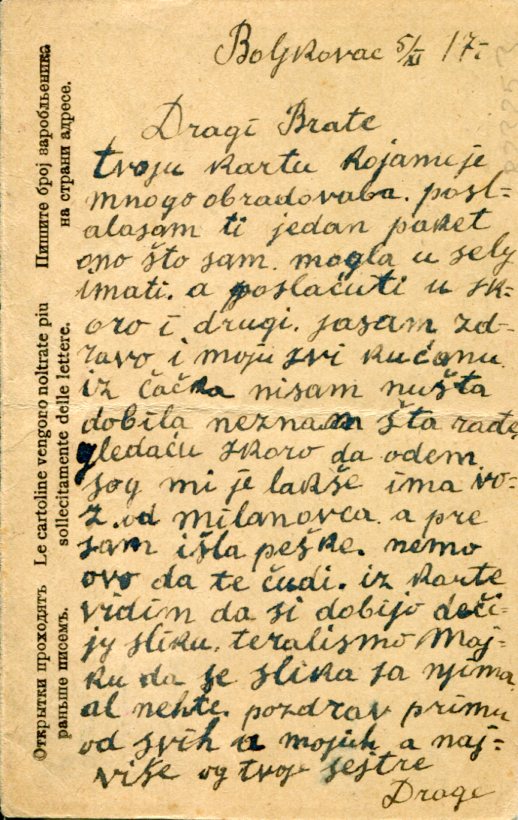 Boljkovac 5/XI 17-
Dragi Brate
tvoju kartu kojamije
mnogo obradovaba. posl-
alasam ti jedan paket
ono što sam. mogla u selu
imati. a poslaćuti u sk-
oro i drugi. jasam zd-
ravo i moju svi kućanu.
iz čačka nisam nušta
dobila neznam šta rade
gledaću skoro da odem
sog mi je lakše ima vo-
z. od milanovca. a pre
sam išla peške. nemo
ovo da te čudi. iz karte
vidim da si dobijo deči-
jy sliku. teralismo Maj-
ku da se slika sa njima
al nehte. pozdrav primu
od svih u mojuh a naj-
više og tvoje sestre
Drage
Пишите број заробљеника
на страни адресе.
Le cartoline vengoro noltrate piu
sollecitamente delle lettere.
Открытки проходятъ
раньше писемъ.